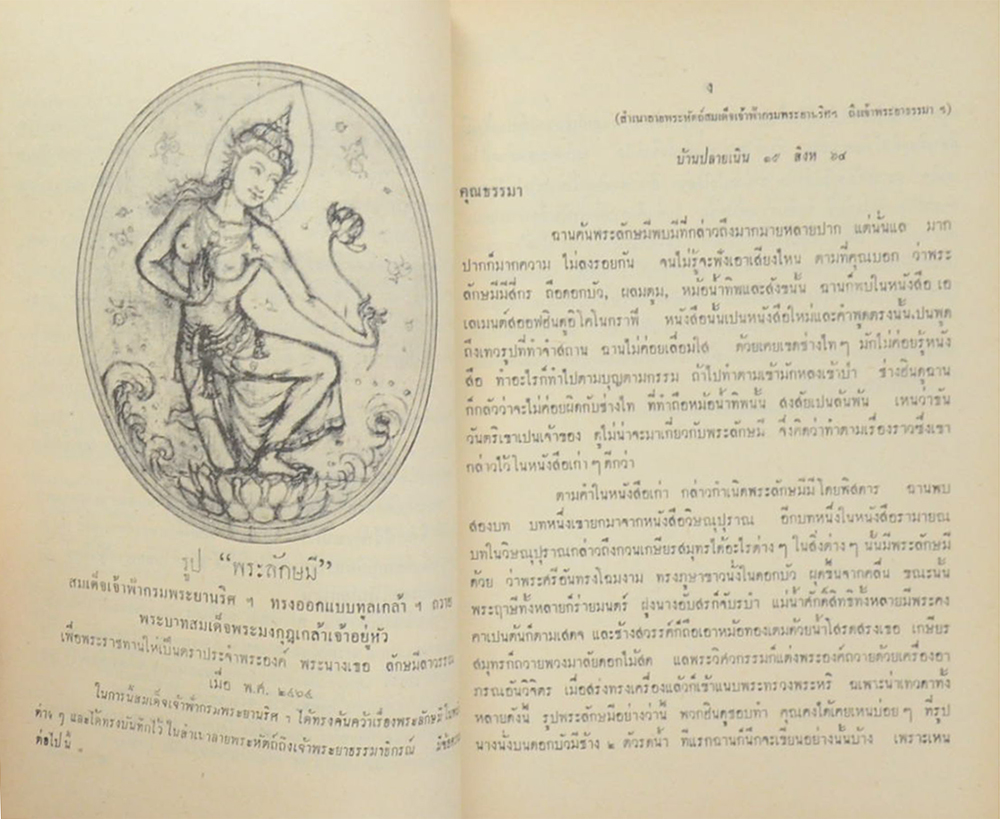 รูป “พระลักษมี”
สมเด็จเจ้าฟ้ากรมพระยานริศ ฯ ทรงออกแบบทูลเกล้า ฯ ถวาย
พระบาทสมเด็จพระมงกุฎเกล้าเจ้าอยู่หัว
เพื่อพระราชทานให้เป็นตราประจำพระองค์ พระนางเธอ ลักษมีลาวรรณ
เมื่อ พ.ศ. ๒๔๖๔
ในการนี้สมเด็จเจ้าฟ้ากรมพระยานริศ ฯ ได้ทรงค้นคว้าเรื่องพระลักษมีใน
ต่าง ๆ และได้ทรงบันทึกไว้ ในสำเนาลายพระหัตถ์ถึงเจ้าพระยาธรรมาธิกรณ์ มีข้อความ
ต่อไปนี้
ง
(สำเนาลายพระหัตถ์สมเด็จเจ้าฟ้ากรมพระยานริศฯ ถึงเจ้าพระยาธรรมา ฯ)
บ้านปลายเนิน ๑๕ สิงห ๖๔
คุณธรรมา
ฉานค้นพระลักษมีพบมีที่กล่าวถึงมากมายหลายปาก แต่นั้นแล มาก
ปากก็มากความ ไม่ลงรอยกัน จนไม่รู้จะฟังเอาเสียงไหน ตามที่คุณบอก ว่าพระ
ลักษมีมีสี่กร ถือดอกบัว, ผลมตูม, หม้อน้ำทิพและสังขนั้น ฉานก็พบในหนังสือ เอ
เลเมนต์สออฟฮินดูอิโคโนกราฟี หนังสือนั้นเปนหนังสือใหม่และคำพูดตรงนั้นเปนพูด
ถึงเทวรูปที่ทำจำสถาน ฉานไม่ค่อยเลื่อมใส ด้วยเคยเขดช่างไทๆ มักไม่ค่อยรู้หนัง
สือ ทำอะไรก็ทำไปตามบุญตามกรรม ถ้าไปทำตามเข้ามักหลงเข้าป่า ช่างฮินดูฉาน
ก็กลัวว่าจะไม่ค่อยผิดกับช่างไท ที่ทำถือหม้อน้ำทิพนั้น สงสัยเปนล้นพ้น เหนว่าธัน
วันตริเขาเปนเจ้าของ ดูไม่น่าจะมาเกี่ยวกับพระลักษมี จึ่งคิดว่าทำตามเรื่องราวซึ่งเขา
กล่าวไว้ในหนังสือเก่า ๆ ดีกว่า
ตามคำในหนังสือเก่า กล่าวกำเนิดพระลักษมีมีโดยพิสดาร ฉานพบ
สองบท บทหนึ่งเขายกมาจากหนังสือวิษณุปุราณ อีกบทหนึ่งในหนังสือรามายณ
บทในวิษณุปุราณกล่าวถึงกวนเกษียรสมุทรได้อะไรต่าง ๆ ในสิ่งต่าง ๆ นั้นมีพระลักษมี
ด้วย ว่าพระศรีอันทรงโฉมงาม ทรงภูษาขาวนั่งในดอกบัว ผุดขึ้นจากคลื่น ขณะนั้น
พระฤาษีทั้งหลายก็ร่ายมนตร์ ฝูงนางอับสรก็จับรำ แม่น้ำศักดิ์สิทธิทั้งหลายมีพระคง
คาเปนต้นก็ตามเสดจ และช้างสวรรค์ก็ถือเอาหม้อทองเตมด้วยน้ำใสรดสรงเธอ เกษียร
สมุทรก็ถวายพวงมาลัยดอกไม้สด แลพระวิศวกรรมก็แต่งพระองค์ถวายด้วยเครื่องอา
ภรณอันวิจิตร เมื่อสรงทรงเครื่องแล้วก็เข้าแนบพระทรวงพระหริ ฉเพาะน่าเทวดาทั้ง
หลายดังนี้ รูปพระลักษมีอย่างว่านี้ พวกฮินดูชอบทำ คุณคงได้เคยเหนบ่อย ๆ ที่รูป
นางนั่งบนดอกบัวมีช้าง ๒ ตัวรดน้ำ ทีแรกฉานก็นึกจะเขียนอย่างนั้นบ้าง เพราะเหน